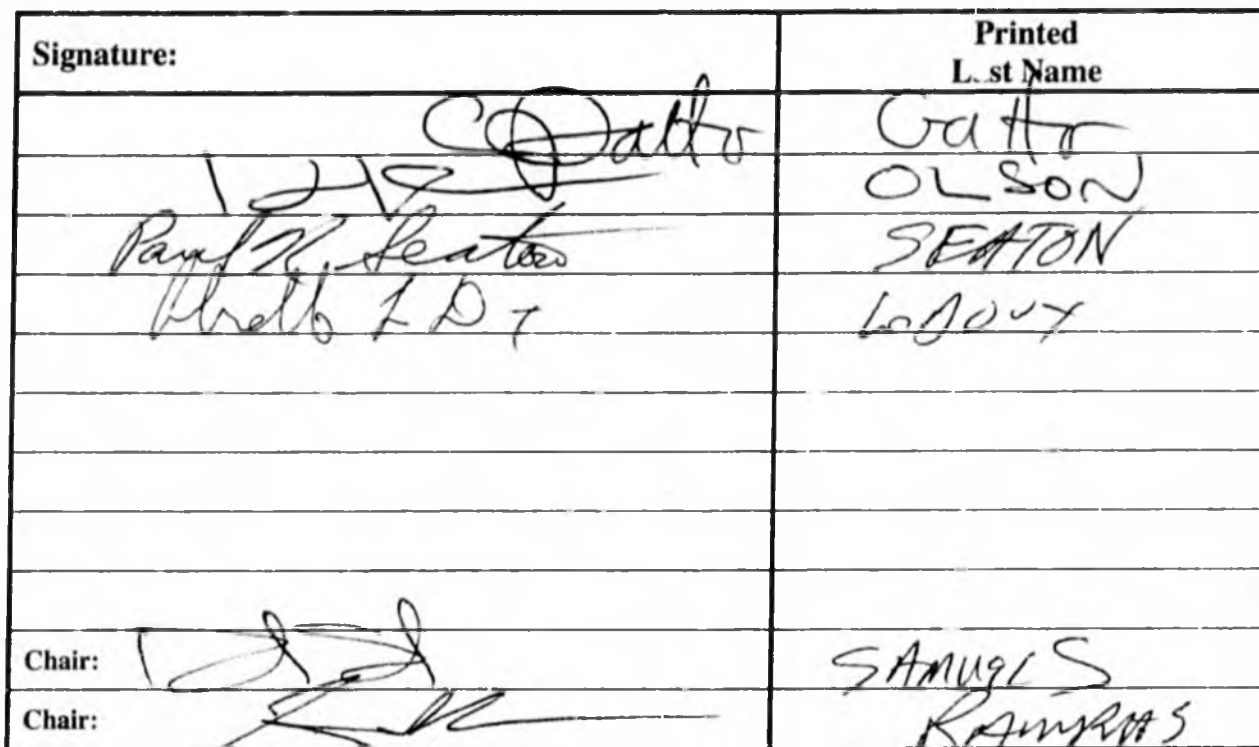 Signature:
Printed
L. st Name
Gatto
Gatto
OLSON
Paul K. Seaton
SEATON
LeDoux
Chair:
SAMUELS
Chair:
RAMRAS